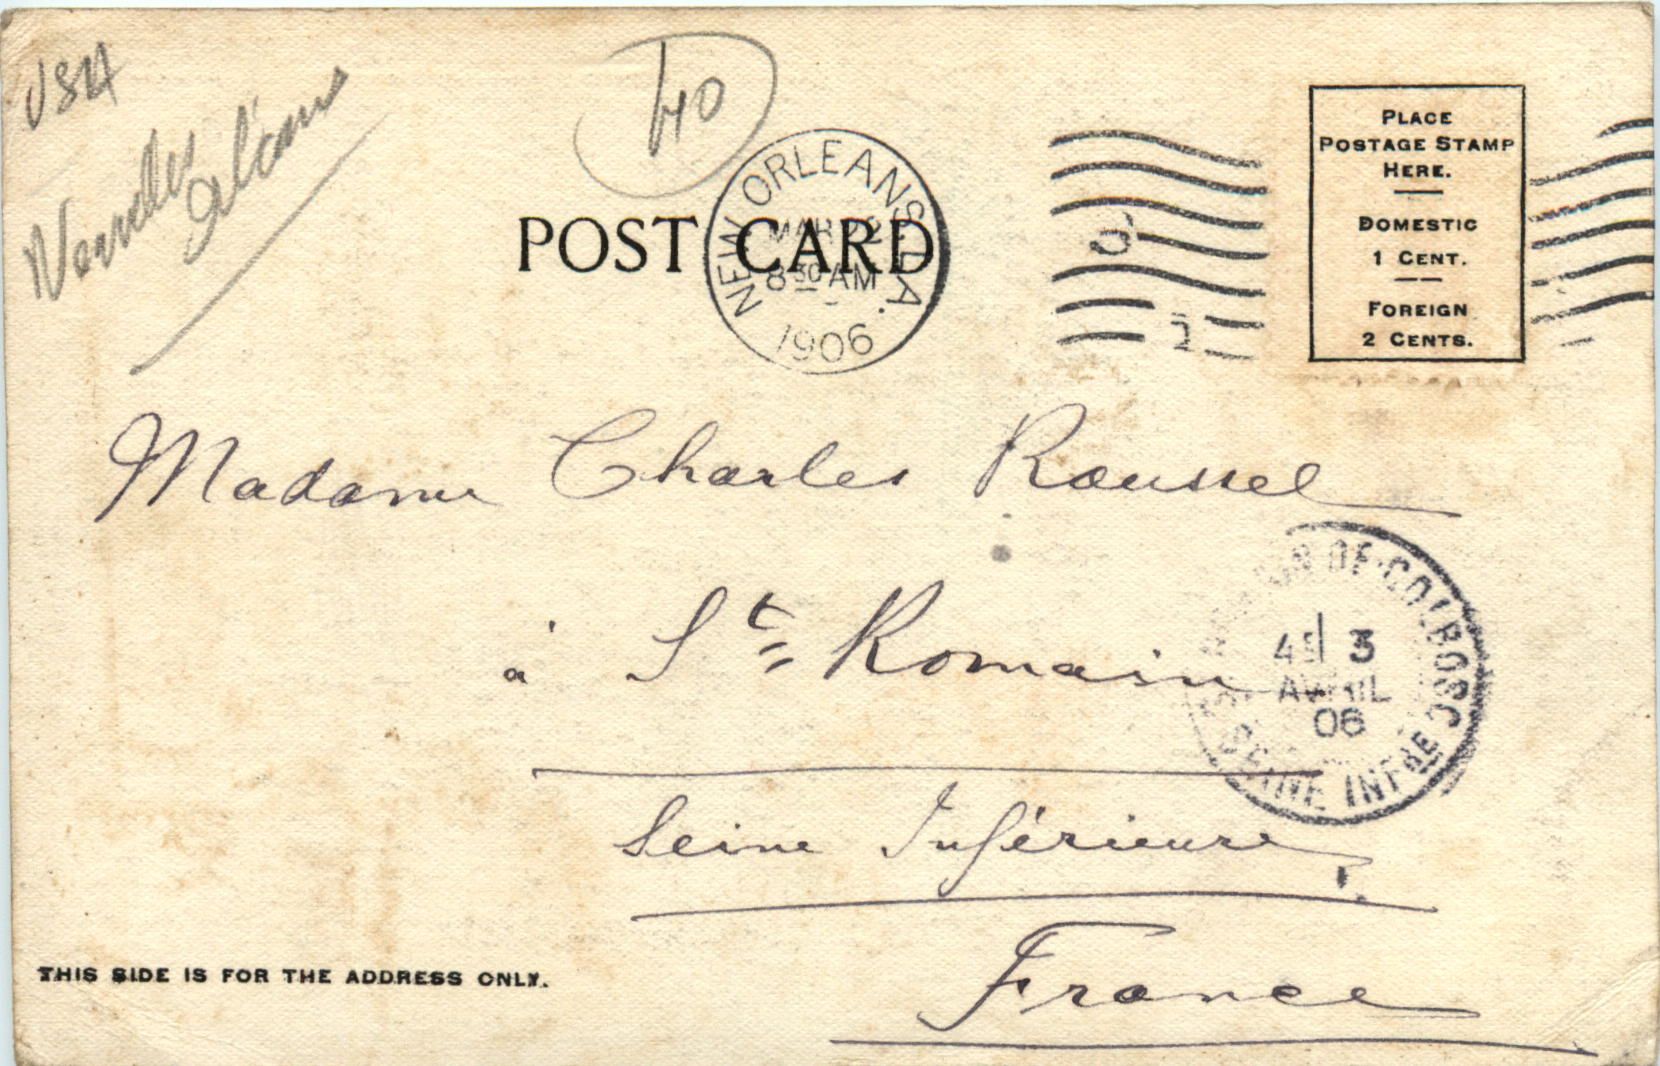 USA
Nouvelle
Orléans
40
POST CARD
NEW ORLEANS, LA.
MAR 22
8 30 AM
1906
PLACE
POSTAGE STAMP
HERE.
DOMESTIC
1 CENT.
FOREIGN
2 CENTS.
Madame Charles Roussel
à Ste Romain
Seine Inférieure
France
OF COLBOSC
3
AVRIL
06
SEINE INFRE
THIS SIDE IS FOR THE ADDRESS ONLY.